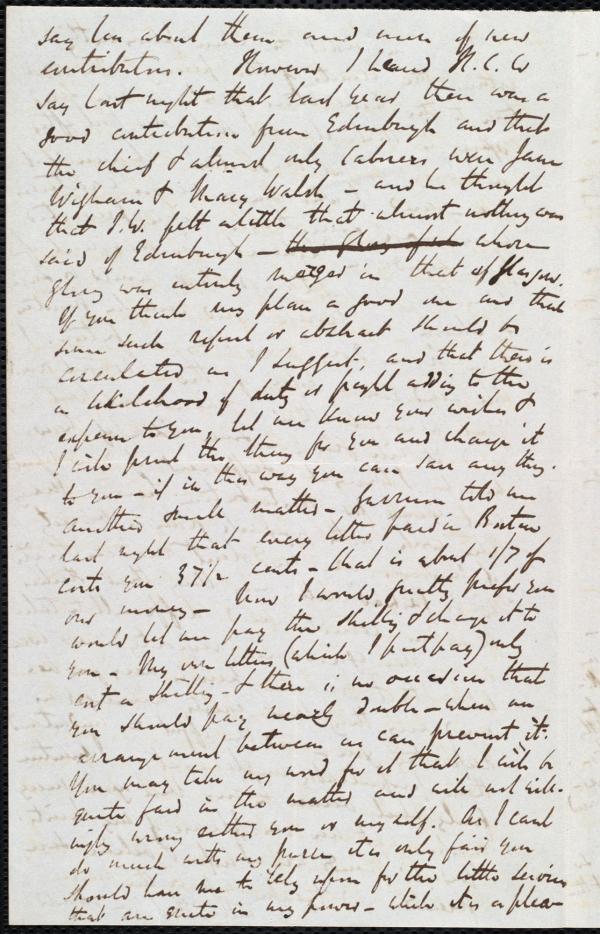 say less about them and more of new
contributors. However I heard H.C.W
say last night that last year there was a
good contribution from Edinburgh and that
the chief & almost only laborers were Jane
Wigham & Mary Walsh - and he thought
that J.W. felt a little that almost nothing was
said of Edinburgh - whose
glory was entirely merged in that of Glasgow.
If you think my plan a good one and that
some such reprint or abstract should be
circulated as I suggest, and that there is
a likelihood of duty or freight adding to the
expense to you, let me know your wishes &
I will print the thing for you and charge it
to you - if in this way you can save any thing.
Another small matter - Garrison told me
last night that every letter paid in Boston
costs you 37½ cents - that is about 1/7 of
our money - Now I would greatly prefer you
would let me pay the shilling & charge it to
you - My own letters (which I post pay) only
cost a shilling - & there is no occasion that
you should pay nearly double - when an
arrangement between us can prevent it.
You may take my word for it that I will be
quite fair in the matter and will not will-
ingly wrong either you or myself. As I cant
do much with my purse it is only fair you
should have me to rely upon for the little services
that are quite in my power - which it is a plea-